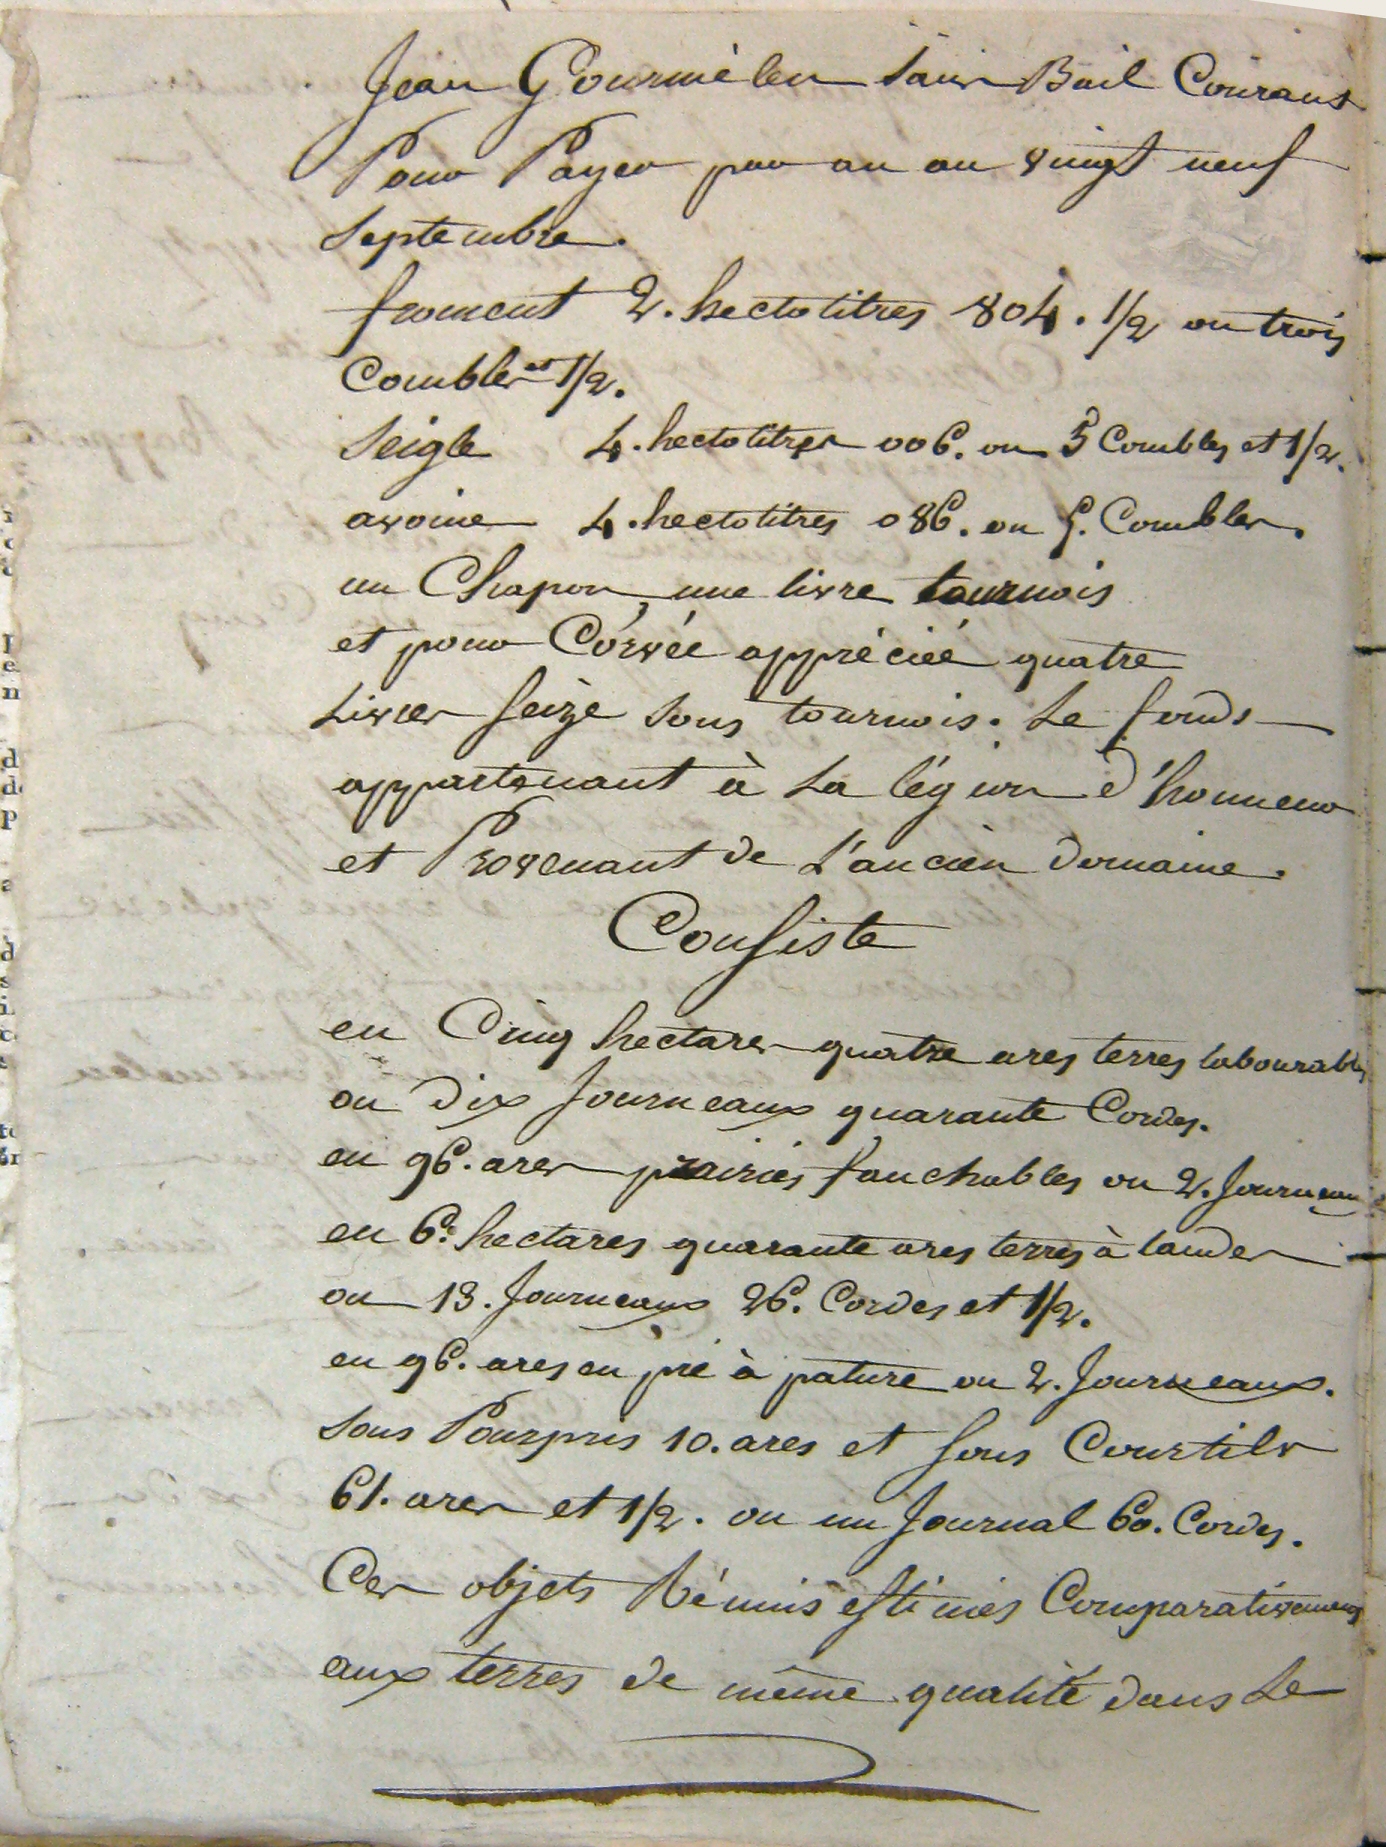 Jean Gourmélen sans Bail Courant
Pour Payer par an au vingt neuf
septembre.
froment 2. hectolitres 804. 1/2 ou trois
Combles et 1/2.
Seigle 4. hectolitres 006. ou 5 Combles et 1/2.
avoine 4. hectolitres 086. ou 5. Combles.
un Chapon, une livre tournois
et pour Corvée appréciée quatre
Livres seize sous tournois. Le fonds
appartenant à La légion d'honneur
et Provenant de L'ancien Domaine.
Consiste
en Cinq hectares quatre ares terres labourables
ou Dix Journeaux quarante Cordes.
en 96. ares prairies fauchables ou 2. Journeaux
en 6. hectares quarante ares terres à landes
ou 13. Journeaux 26. Cordes et 1/2.
en 96. ares en pré à pature ou 2. Journeaux.
sous Pourpris 10. ares et sous Courtils
61. ares et 1/2. ou un Journal 60. Cordes.
Ces objets Réunis estimés Comparativement
aux terres de même qualité dans Le